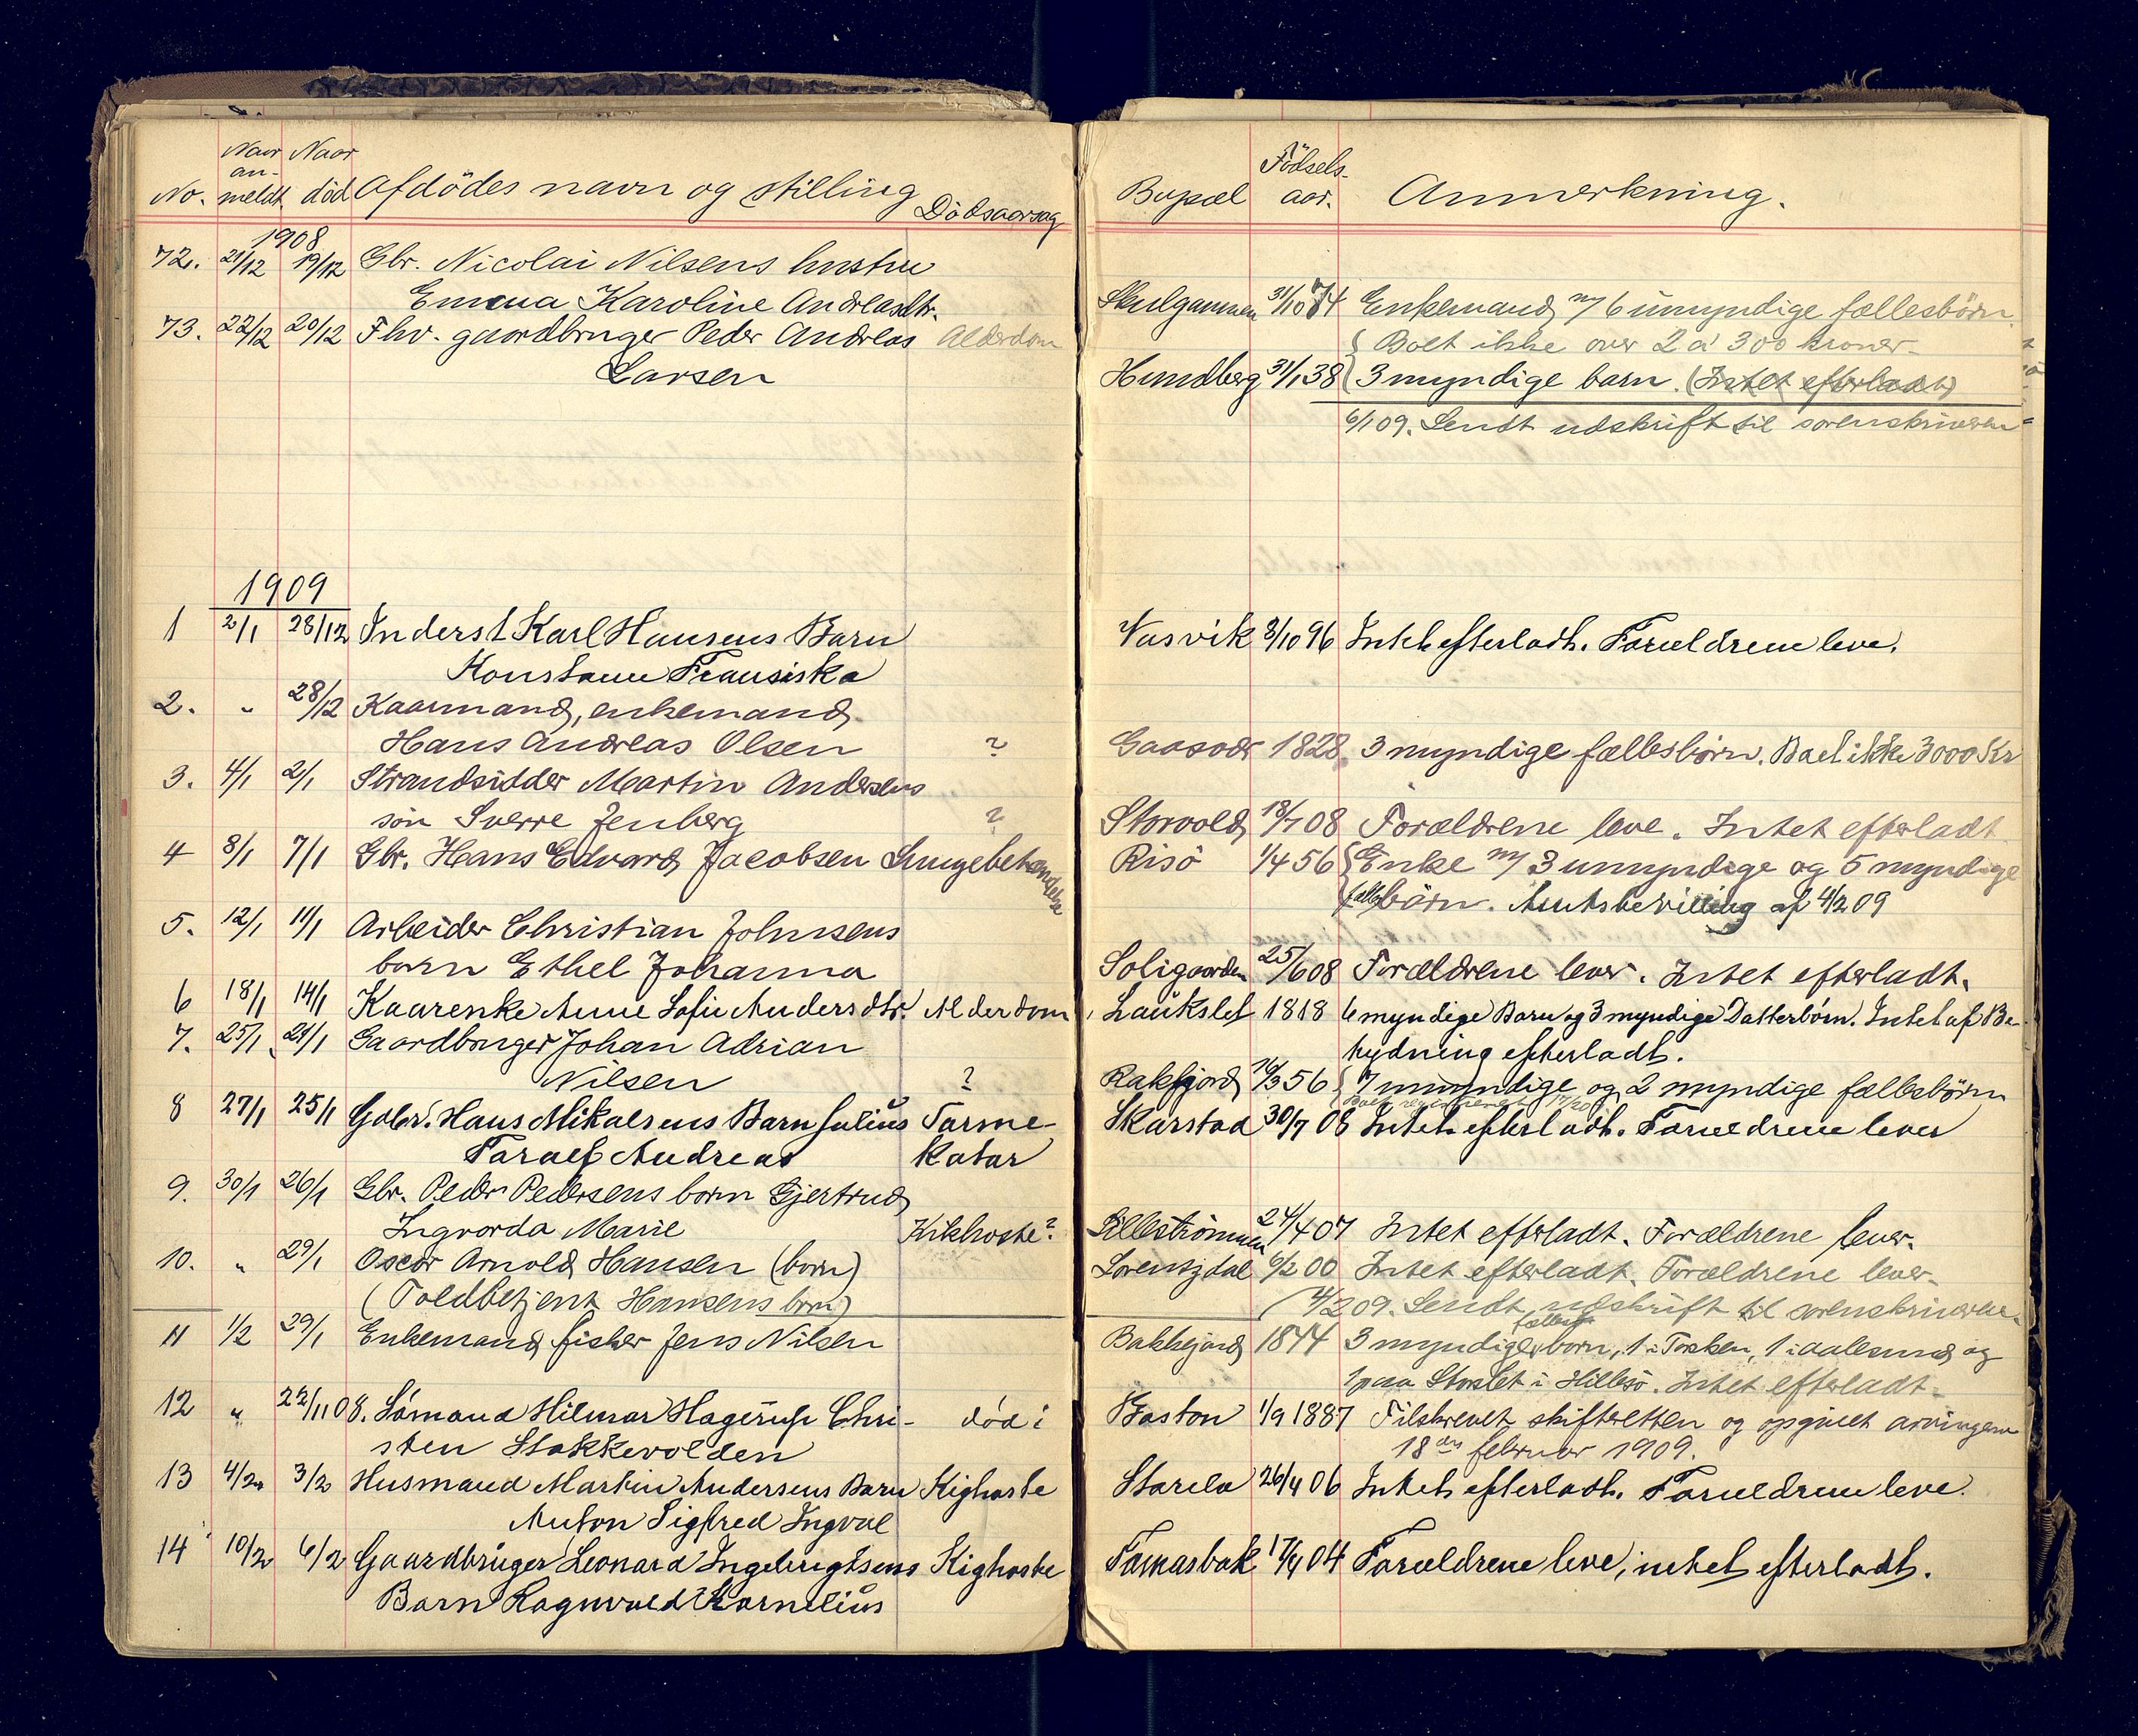 No. Naar an-meldt. Naar död Afdödes navn og stilling Dödsaarsag
1908
72. 21/12 19/12 Gbr. Nicolai Nilsens hustru
Emma Karoline Andreasdtr.
73. 22/12 20/12 Fhv. gaardbruger Peder Andreas Alderdom
Larsen
1909
1 2/1 28/12 Inderst Karl Hansens Barn
Konstanse Fransiska
2. " 28/12 Kaarmand, enkemand
Hans Andreas Olsen ?
3. 4/1 2/1 Strandsidder Martin Andersens
sön Sverre Jenberg ?
4 8/1 7/1 Gbr. Hans Edvard Jacobsen Lungebetændelse
5. 12/1 11/1 Arbeider Christian Johnsens
barn Ethel Johanna
6 18/1 14/1 Kaarenke Anne Sofie Andersdtr. Alderdom
7. 25/1 24/1 Gaardbruger Johan Adrian
Nilsen ?
8 27/1 25/1 Gabr. Hans Mikalsens Barn Julius Tarme-
Taralf Andreas katar
9. 30/1 26/1 Gbr. Peder Pedersens barn Gjertrud
Ingvarda Marie Kikhoste?
10. " 29/1 Oscar Arnold Hansen (barn)
(Toldbetjent Hansens barn)
11 1/2 29/1 Enkemand fisker Jens Nilsen
12 " 22/11 08. Sömand Hilmar Hagerup Chri- död i
sten Stakkevolden
13 4/2 3/2 Husmand Martin Andersens Barn Kighoste
Anton Sigfred Ingval
14 10/2 6/2 Gaardbruger Leonard Ingebrigtsens Kighoste
Barn Ragnvald Kornelius
Bopæl Födsels-aar. Anmerkning.
Skulgammen 31/10 74 Enkemand m/ 6 umyndige fællesbörn.
Boet ikke over 2 a 300 kroner
Hundberg 31/1 38 3 myndige barn. (Intet efterladt)
6/1 09. Sendt udskrift til sorenskriveren
Vasvik 3/10 96 Intet efterladt. Foreldrene leve.
Gaasvær 1828 3 myndige fællesbörn. Boet ikke 3000 Kr
Storvold 18/7 08 Forældrene leve. Intet efterladt
Risö 1/4 56 Enke m/ 3 umyndige og 5 myndige
fællesbörn. Amtsbevilling af 4/2 09
Soligaarden 25/6 08 Forældrene lever. Intet efterladt.
Laukslet 1818 6 myndige Barn og 3 myndige Datterbörn. Intet af Be-
tydning efterladt.
Rakfjord 16/3 56 7 umyndige og 2 myndige fællesbörn
Skarstad 30/7 08 Intet efterladt. Forældrene lever
Lilleströmmen 24/4 07 Intet efterladt. Forældrene lever.
Lorensjdal 6/2 00 Intet efterladt. Forældrene lever.
(4/2 09. Sendt udskrift til sorenskriveren.
Bakkejord 1844 3 myndige fælles börn, 1 i Torsken, 1 i Aalesund og
1 paa Storslet i Hillesö. Intet efterladt.
Boston 1/9 1887 Tilskrevet skifteretten og opgivet arvingerne
18de februar 1909.
Storelv 26/4 06 Intet efterladt. Forældrene leve.
Tomasbak 17/4 04 Forældrene leve, intet efterladt.